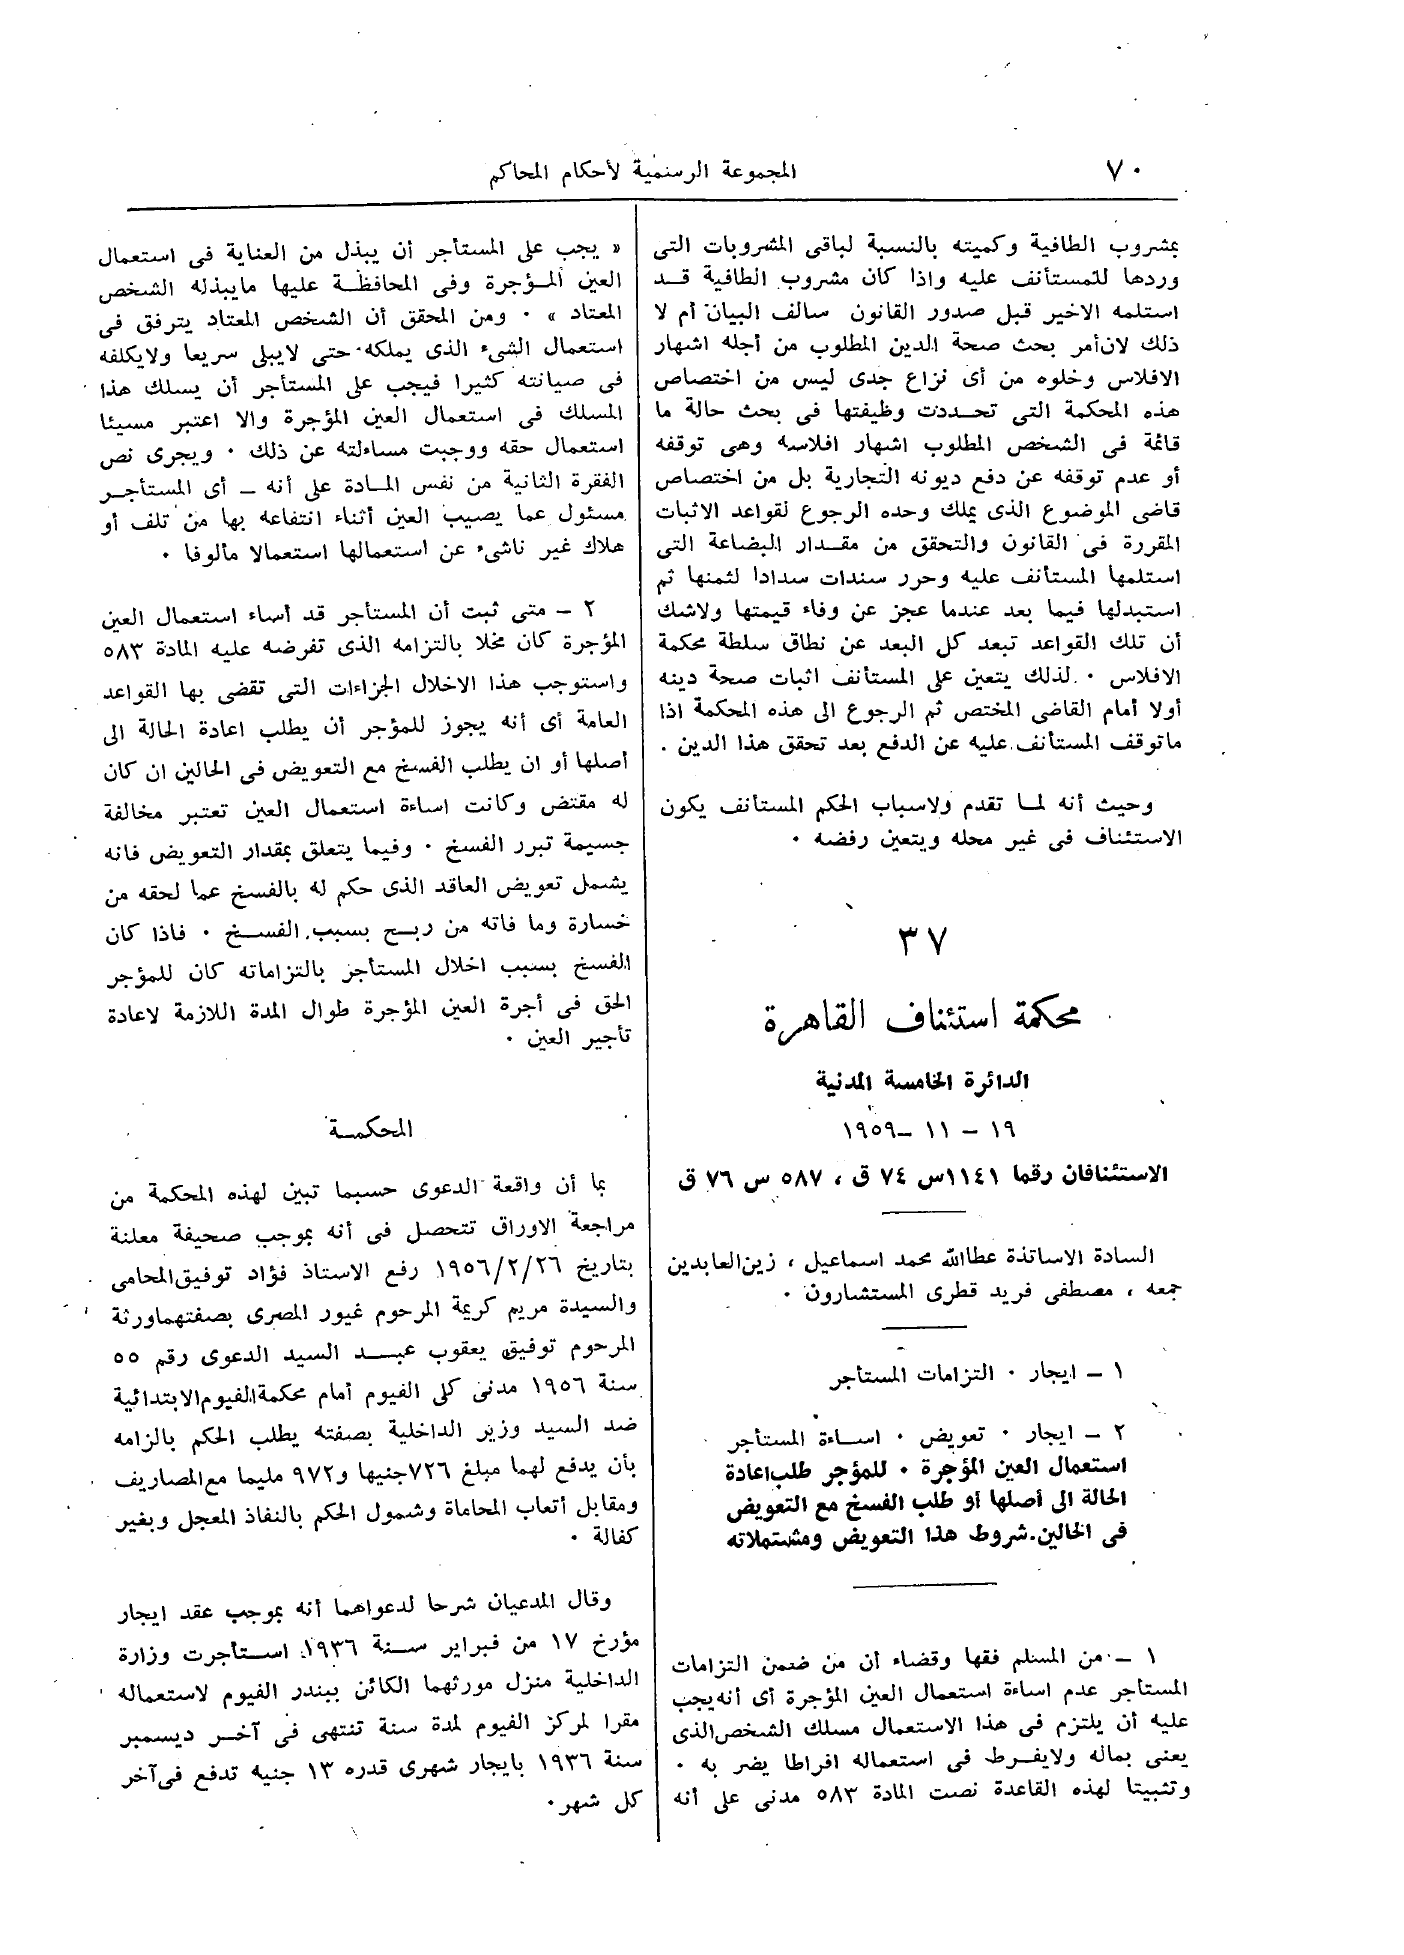 ٧٠
المجموعة الرسمية لأحكام المحاكم
بمشروب الطافية وكميته بالنسبة لباقى المشروبات التى
وردها للمستأنف عليه واذا كان مشروب الطافية قد
استلمه الاخير قبل صدور القانون سالف البيان أم لا
ذلك لان أمر بحث صحة الدين المطلوب من أجله اشهار
الافلاس وخلوه من أى نزاع جدى ليس من اختصاص
هذه المحكمة التى تحددت وظيفتها فى بحث حالة ما
قائمة فى الشخص المطلوب اشهار افلاسه وهى توقفه
أو عدم توقفه عن دفع ديونه التجارية بل من اختصاص
قاضى الموضوع الذى يملك وحده الرجوع لقواعد الاثبات
المقررة فى القانون والتحقق من مقدار البضاعة التى
استلمها المستأنف عليه وحرر سندات سدادا لثمنها ثم
استبدلها فيما بعد عندما عجز عن وفاء قيمتها ولاشك
أن تلك القواعد تبعد كل البعد عن نطاق سلطة محكمة
الافلاس ٠ لذلك يتعين على المستأنف اثبات صحة دينه
أولا أمام القاضى المختص ثم الرجوع الى هذه المحكمة اذا
ماتوقف المستأنف عليه عن الدفع بعد تحقق هذا الدين ٠
وحيث أنه لما تقدم ولاسباب الحكم المستأنف يكون
الاستئناف فى غير محله ويتعين رفضه ٠
٣٧
محكمة استئناف القاهرة
الدائرة الخامسة المدنية
١٩ – ١١ – ١٩٥٩
الاستئنافان رقما ١١٤١س ٧٤ ق ، ٥٨٧ س ٧٦ ق
السادة الاساتذة عطاالله محمد اسماعيل ، زين العابدين
جمعه ، مصطفى فريد قطرى المستشارون ٠
١ – ايجار ٠ التزامات المستأجر
٢ – ايجار ٠ تعويض ٠ اساءة المستأجر
استعمال العين المؤجرة ٠ للمؤجر طلب اعادة
الحالة الى أصلها أو طلب الفسخ مع التعويض
فى الحالين ٠ شروط هذا التعويض ومشتملاته
١ – من المسلم فقها وقضاء أن من ضمن التزامات
المستأجر عدم اساءة استعمال العين المؤجرة أى أنه يجب
عليه أن يلتزم فى هذا الاستعمال مسلك الشخص الذى
يعنى بماله ولايفرط فى استعماله افراطا يضر به ٠
وتثبيتا لهذه القاعدة نصت المادة ٥٨٣ مدنى على أنه
« يجب على المستأجر أن يبذل من العناية فى استعمال
العين المؤجرة وفى المحافظة عليها مايبذله الشخص
المعتاد » ٠ ومن المحقق أن الشخص المعتاد يترفق فى
استعمال الشىء الذى يملكه حتى لايبلى سريعا ولايكلفه
فى صيانته كثيرا فيجب على المستأجر أن يسلك هذا
المسلك فى استعمال العين المؤجرة والا اعتبر مسيئا
استعمال حقه ووجبت مساءلته عن ذلك ٠ ويجرى نص
الفقرة الثانية من نفس المادة على أنه – أى المستأجر
مسئول عما يصيب العين أثناء انتفاعه بها من تلف أو
هلاك غير ناشىء عن استعمالها استعمالا مألوفا ٠
٢ – متى ثبت أن المستأجر قد أساء استعمال العين
المؤجرة كان مخلا بالتزامه الذى تفرضه عليه المادة ٥٨٣
واستوجب هذا الاخلال الجزاءات التى تقضى بها القواعد
العامة أى أنه يجوز للمؤجر أن يطلب اعادة الحالة الى
أصلها أو ان يطلب الفسخ مع التعويض فى الحالين ان كان
له مقتض وكانت اساءة استعمال العين تعتبر مخالفة
جسيمة تبرر الفسخ ٠ وفيما يتعلق بمقدار التعويض فانه
يشمل تعويض العاقد الذى حكم له بالفسخ عما لحقه من
خسارة وما فاته من ربح بسبب الفسخ ٠ فاذا كان
الفسخ بسبب اخلال المستأجر بالتزاماته كان للمؤجر
الحق فى أجرة العين المؤجرة طوال المدة اللازمة لاعادة
تأجير العين ٠
المحكمة
بما أن واقعة الدعوى حسبما تبين لهذه المحكمة من
مراجعة الاوراق تتحصل فى أنه بموجب صحيفة معلنة
بتاريخ ١٩٥٦/٢/٢٦ رفع الاستاذ فؤاد توفيق المحامى
والسيدة مريم كريمة المرحوم غيور المصرى بصفتهما ورثة
المرحوم توفيق يعقوب عبد السيد الدعوى رقم ٥٥
سنة ١٩٥٦ مدنى كلى الفيوم أمام محكمة الفيوم الابتدائية
ضد السيد وزير الداخلية بصفته يطلب الحكم بالزامه
بأن يدفع لهما مبلغ ٧٢٦ جنيها و٩٧٢ مليما مع المصاريف
ومقابل أتعاب المحاماة وشمول الحكم بالنفاذ المعجل وبغير
كفالة ٠
وقال المدعيان شرحا لدعواهما أنه بموجب عقد ايجار
مؤرخ ١٧ من فبراير سنة ١٩٣٦ استأجرت وزارة
الداخلية منزل مورثهما الكائن ببندر الفيوم لاستعماله
مقرا لمركز الفيوم لمدة سنة تنتهى فى آخر ديسمبر
سنة ١٩٣٦ بايجار شهرى قدره ١٣ جنيه تدفع فى آخر
كل شهر ٠